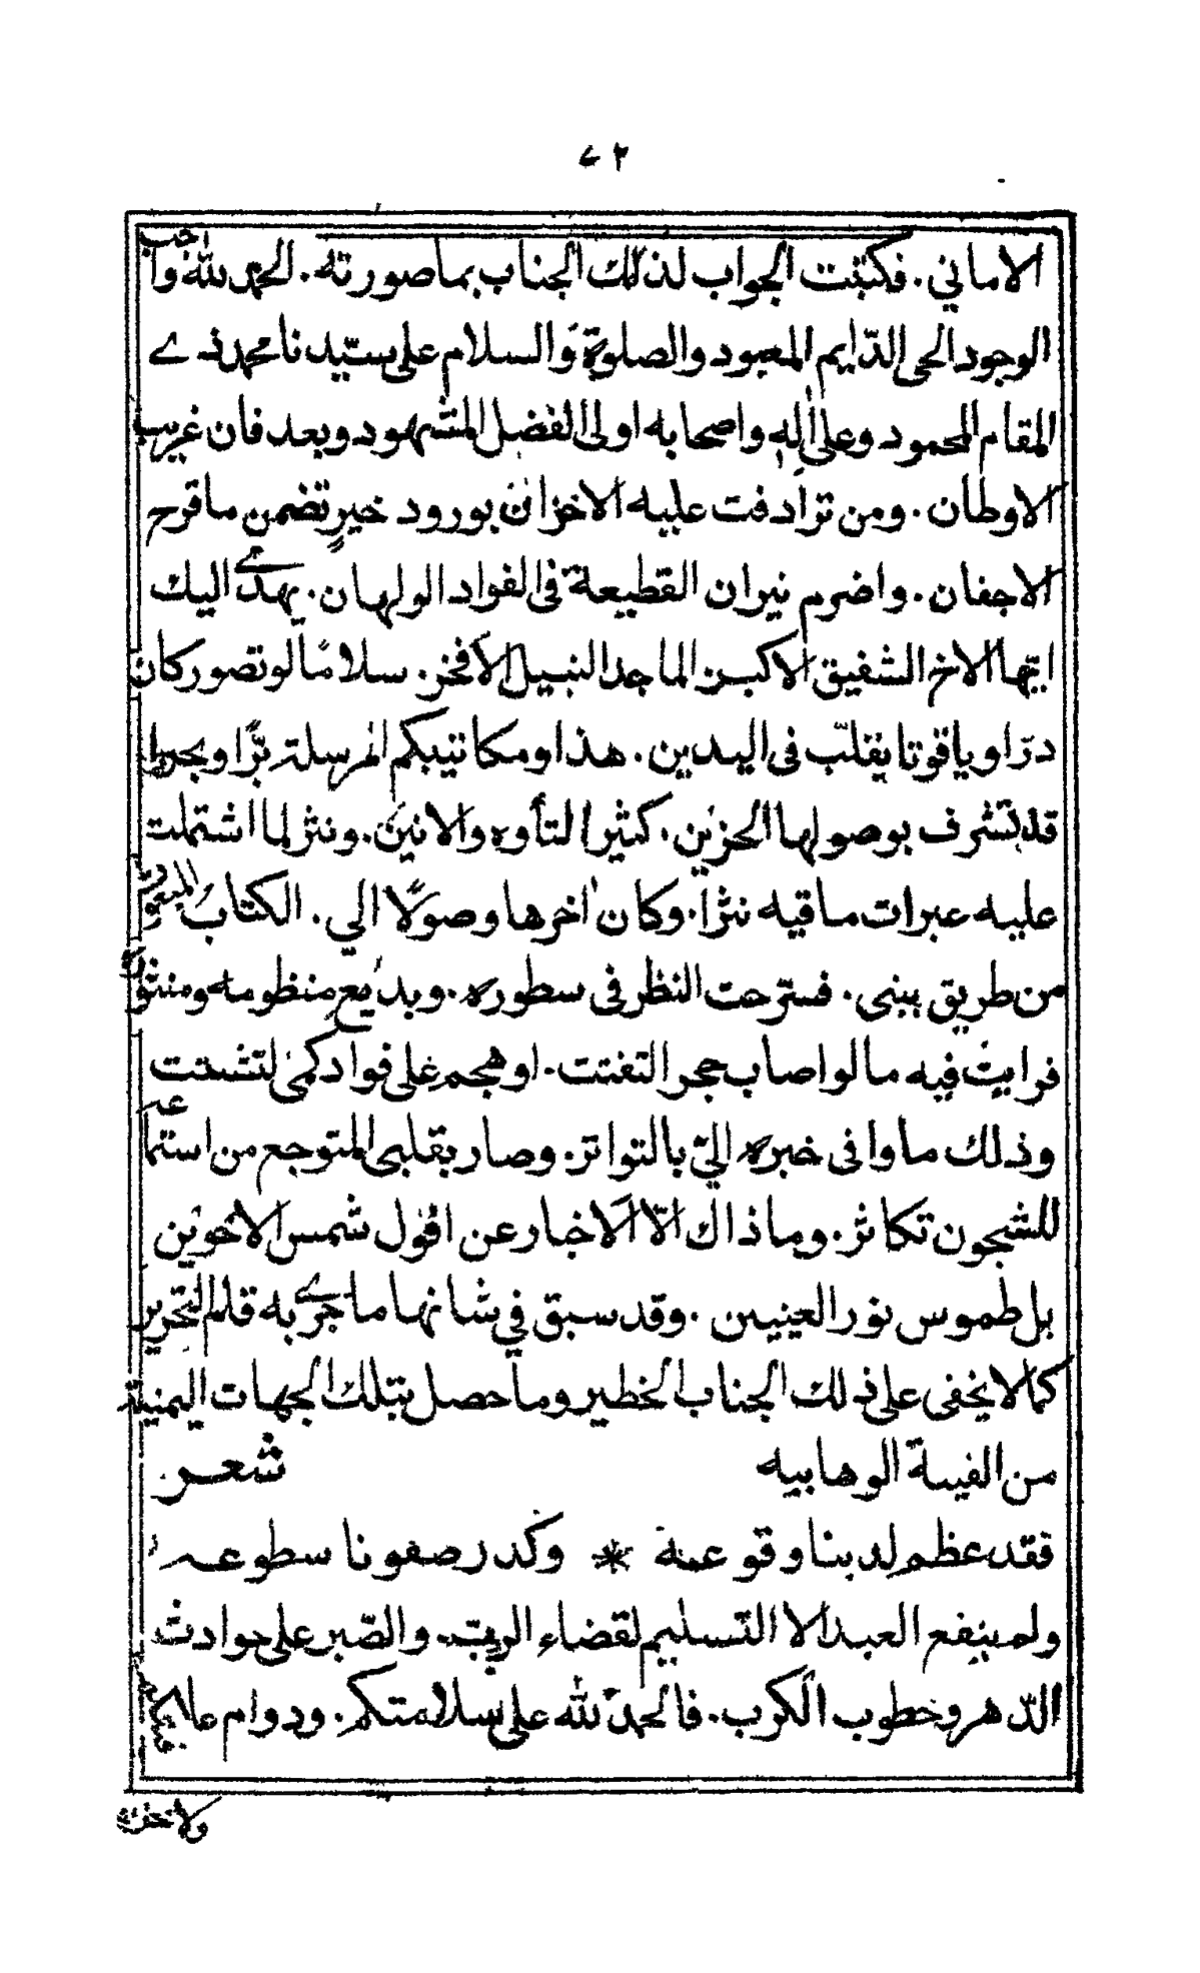 ٧٢
الاماني. فكتبت الجواب لذلك الجناب بما صورته. الحمد لله واجب
الوجود الحى الدّايم المعبود والصلوة والسلام على سيّدنا محمد ذے
المقام المحمود وعلى اله واصحابه اولى الفضل المشهود وبعد فان غريب
الاوطان. ومن ترادفت عليه الاحزان بورود خبرٍ تضمن ما قرح
الاجفان. واضرم نيران القطيعة فى الفواد الولهان. يهدے اليك
ايّها الاخ الشفيق الاكبر الماجد النبيل الأفخر. سلامًا لو تصور كان
درّا وياقوتا يقلّب فى اليدين. هذا ومكاتيبكم المرسلة برًّا وبحرا
قد تشرف بوصولها الحزين. كثير التأوه والانين. ونثر لما اشتملت
عليه عبرات ماقيه نثرا. وكان اخرها وصولًا الي. الكتاب
من طريق بيبى. فسرّحت النظر فى سطوره. وبديع منظومه ومنثوره
فرايت فيه ما لو اصاب حجر التفتت. او هجم على فواد كمى لتشتت
وذلك ما وافى خبره اليّ بالتواتر. وصار بقلبى المتوجع من استماعه
للشجون تكاثر. وما ذاك الّا الاخبار عن افول شمس الاخوين
بل طموس نور العينين. وقد سبق في شانها ما جرے به قلم التحرير
كما لا يخفى على ذلك الجناب الخطير وما حصل بتلك الجهات اليمنية
من الفيىة الوهابيه شعر
فقد عظم لدينا وقوعه * وكدر صفونا سطوعه
ولم ينفع العبد الا التسليم لقضاء الربّ. والصّبر على حوادث
الدّهر وخطوب الكرب. فالحمد لله على سلامتكم. ودوام عافيتكم